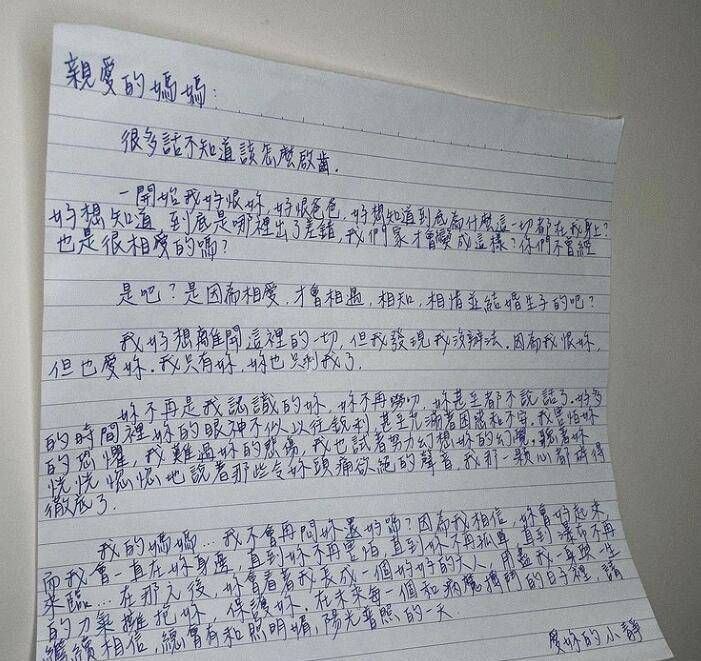 親愛的媽媽:
很多話不知道該怎麼啟齒.
一開始我好恨妳,好恨爸爸,好想知道到底為什麼這一切都在我身上?
好想知道 到底是哪裡出了差錯,我們家才會變成這樣?你們不曾經
也是很相愛的嗎?
是吧?是因為相愛.才會相遇.相知,相惜並結婚生子的吧?
我好想離開這裡的一切,但我發現我沒辦法.因為我恨妳,
但也愛妳.我只有妳.妳也只剩我了.
妳不再是我認識的妳,妳不再嘮叨,妳甚至都不說話了.好多
的時間裡妳的眼神不似以往銳利,甚至充滿著困惑和不安.我害怕妳
的恐懼,我難過妳的悲傷,我也試著努力幻想妳的幻覺.聽著妳
恍恍惚惚地說著那些令妳頭痛欲絕的聲音.我那一顆心都碎得
徹底了.
我的媽媽...我不會再問妳還好嗎?因為我相信,妳會好起來,
而我會一直在妳身邊,直到妳不再害怕,直到妳不再孤單,直到瀑布不再
來臨...在那之後,妳會看著我長成一個好好的大人,用盡我一身與一生
的力氣擁抱妳、保護妳.在未來每一個和病魔搏鬥的日子裡,請
繼續相信,總會有和煦明媚,陽光普照的一天.
愛妳的小靜